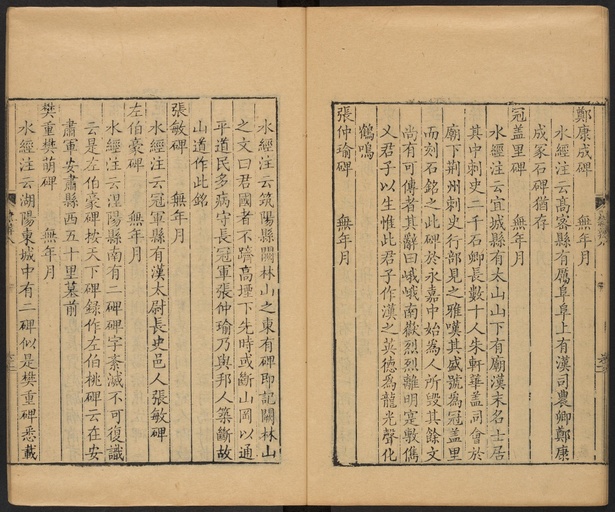 鄭康成碑 無年月
水經注云高密縣有厲阜阜上有漢司農卿鄭康
成冢石碑猶存
冠盖里碑 無年月
水經注云宜城縣有太山山下有廟漢末名士居
其中刺史二千石卿長數十人朱軒華盖同會於
廟下荆州刺史行部見之雅嘆其盛號為冠盖里
而刻石銘之此碑於永嘉中始為人所毁其餘文
尚有可傳者其辭曰峨峨南嶽烈烈離明寔敷儁
乂君子以生惟此君子作漢之英德為龍光聲化
鶴鳴
張仲瑜碑 無年月
水經注云筑陽縣關林山之東有碑即記關林山
之文曰君國者不躋高堙下先時或斷山岡以通
平道民多病守長冠軍張仲瑜乃與邦人築斷故
山道作此銘
張敏碑 無年月
水經注云冠軍縣有漢太尉長史邑人張敏碑
左伯豪碑 無年月
水經注云涅陽縣南有二碑碑字紊滅不可復識
云是左伯豪碑按天下碑録作左伯桃碑云在安
肅軍安肅縣西五十里墓前
樊重樊萌碑 無年月
水經注云湖陽東城中有二碑似是樊重碑悉載